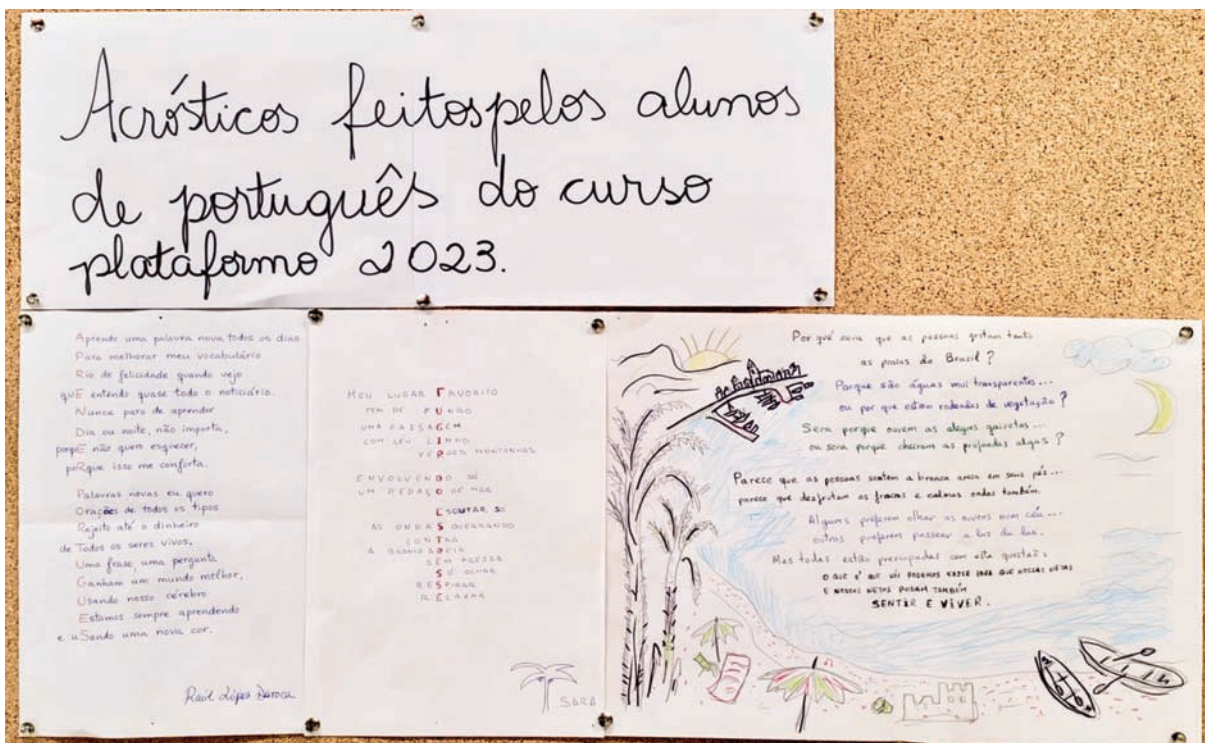 Acrósticos feitospelos alunos
de português do curso
plataformo 2023.
Aprendo uma palavra nova todos os dias
Para melhorar meu vocabulário
Rio de felicidade quando vejo
quE entendo quase todo o noticiário.
Nunca paro de aprender
Dia ou noite, não importa,
porqE não quero esquecer,
poRque isso me conforta.
Palavras novas eu quero
Orações de todos os tipos
Rejeito até o dinheiro
de Todos os seres vivos.
Uma frase, uma pergunta
Ganham um mundo melhor,
Usando nosso cérebro
Estamos sempre aprendendo
e uSando uma nova cor.
Raúl López
MEU LUGAR FAVORITO
TEM DE FUNDO
UMA PAISAGEM
COM SEU LINDO
VERDES MONTANHAS
ENVOLVENDO SÓ
UM PEDAÇO DE MAR
ESCUTAR SÓ
AS ONDAS
CONTRA
A
SEM PRESSA
SÓ OLHAR
RESPIRAR
RELAXAR
SARA
Por qué sera que as pessoas gostam tanto
as praias do Brasil?
Porque são águas mui transparentes...
ou por que estão rodeadas de vegetação?
Será porque ouvem as alegres gaivotas...
ou sera porque cheiram as profundas algas?
Parece que as pessoas sentem a branca areia em seus pés...
parece que desfrutam as fracas e calmas ondas também.
Alguns preferem olhar as nuvens num céu...
outros preferem passear a luz da lua.
Mas todas estão preocupadas com esta questão:
O QUE É QUE NÓS PODEMOS FAZER PARA QUE NOSSAS NETAS
E NOSSOS NETOS PODAM TAMBÉM
SENTIR E VIVER.